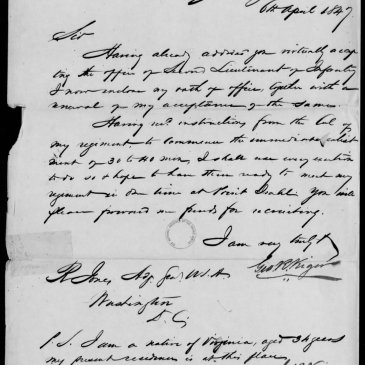 6th April 1847
Sir
Having already advised you virtually accep
ting the office of Second Lieutenant of Infantry
I now enclose my oath of office, together with a
renewal of my acceptance of the same.
Having recd instructions from the Col of
my regiment to commence the immediate enlist
ment of 30 to 40 men, I shall use every exertion
to do so & hope to have them ready to meet my
regiment in due time at Point Isabel. You will
please forward me funds for recruiting.
I am very truly &
Geo
R Jones Adj. Gen. U.S.A
Washington
D.C.
P.S. I am a native of Virginia, aged 34 years
my present residence is at this place